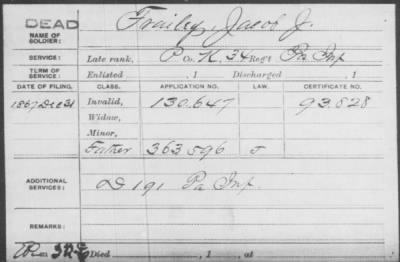 DEAD
NAME OF SOLDIER: Frailey, Jacob J.
SERVICE: Late rank, P Co. K, 34 Reg't Pa Inf
TERM OF SERVICE: Enlisted , 1 Discharged , 1
DATE OF FILING. CLASS. APPLICATION NO. LAW. CERTIFICATE NO.
1867 Dec 31 Invalid, 130.647 93.828
Widow,
Minor,
Father 363596 J
ADDITIONAL SERVICES: D 191 Pa Inf.
REMARKS:
Died , 1 , at